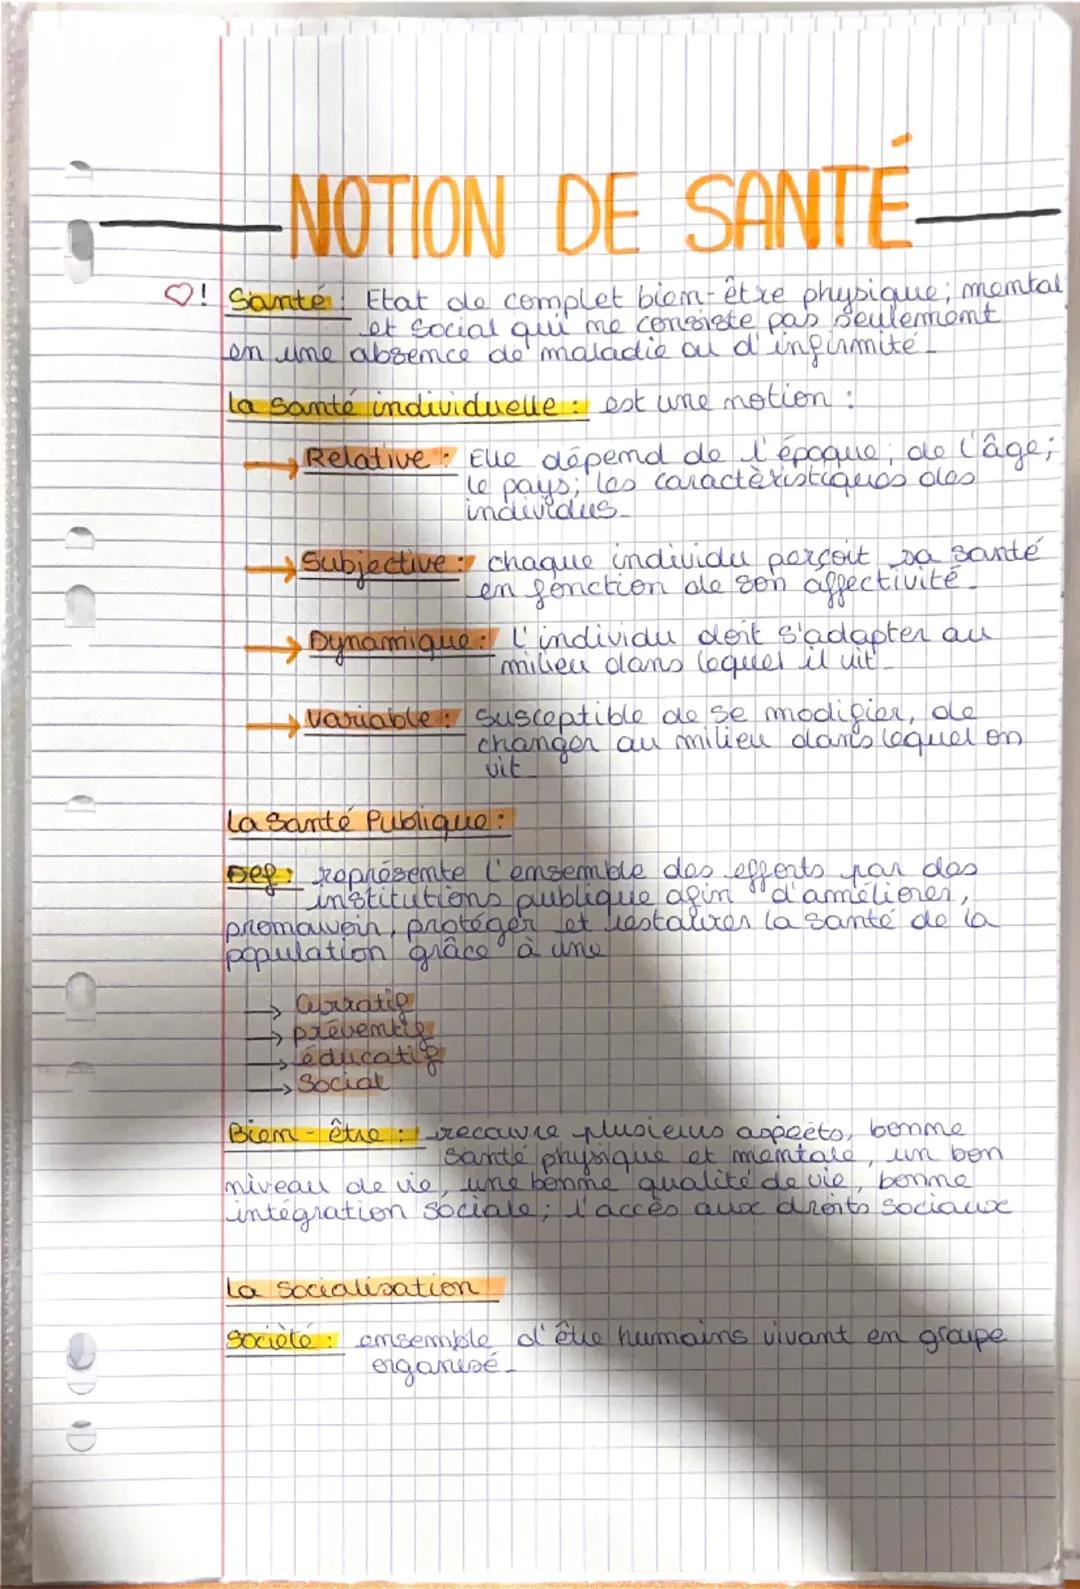 NOTION DE SANTÉ
♡! Santé : Etat de complet bien-être physique ; mental
et social qui ne consiste pas seulement
en une absence de maladie ou d'infirmité.
La santé individuelle : est une notion :
→ Relative : Elle dépend de l'époque ; de l'âge ;
le pays ; les caractèristiques des
individus.
→ Subjective : chaque individu perçoit sa santé
en fonction de son affectivité.
→ Dynamique : L'individu doit s'adapter au
milieu dans lequel il vit.
→ Variable : Susceptible de se modifier, de
changer au milieu dans lequel on
vit.
La Santé Publique :
Def : représente l'ensemble des efforts par des
institutions publique afin d'améliorer,
promouvoir, protéger et restaurer la santé de la
population grâce à une
→ Curratif
→ préventif
→ éducatif
→ Social
Bien-être : recouvre plusieurs aspects, bonne
santé physique et mentale, un bon
niveau de vie, une bonne qualité de vie, bonne
intégration sociale ; l'accès aux droits sociaux
La Socialisation
Socièté : ensemble d'être humains vivant en groupe
organisé.